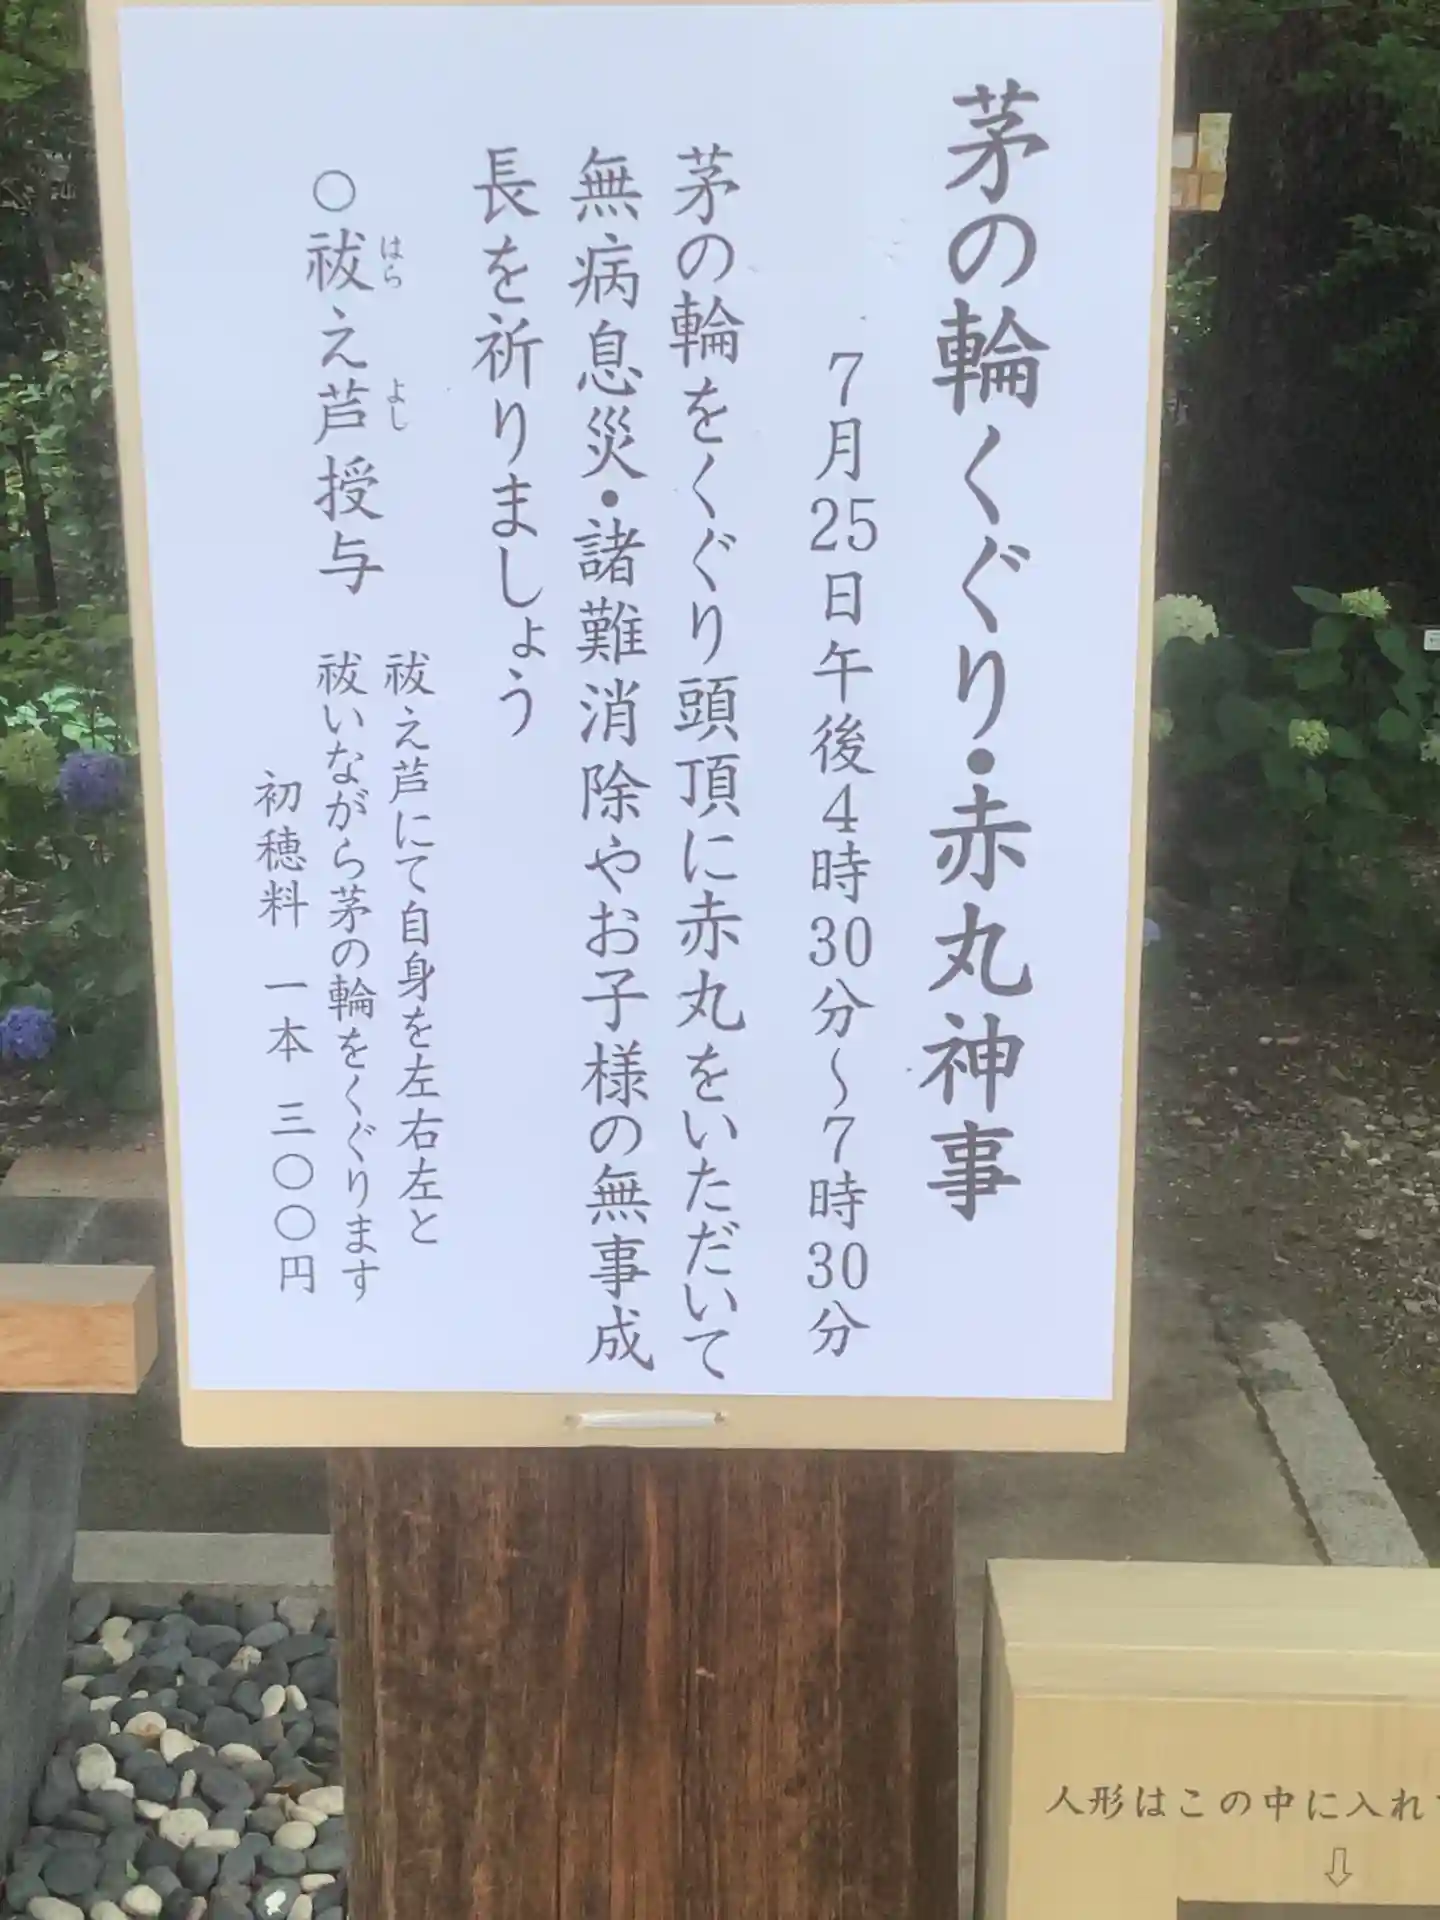 茅の輪くぐり・赤丸神事
7月25日午後4時30分～7時30分
茅の輪をくぐり頭頂に赤丸をいただいて
無病息災・諸難消除やお子様の無事成
長を祈りましょう
○祓え芦授与
はら
よし
祓え芦にて自身を左右左と
祓いながら茅の輪をくぐります
初穂料 一本 三〇〇円
人形はこの中に入れ
⇩